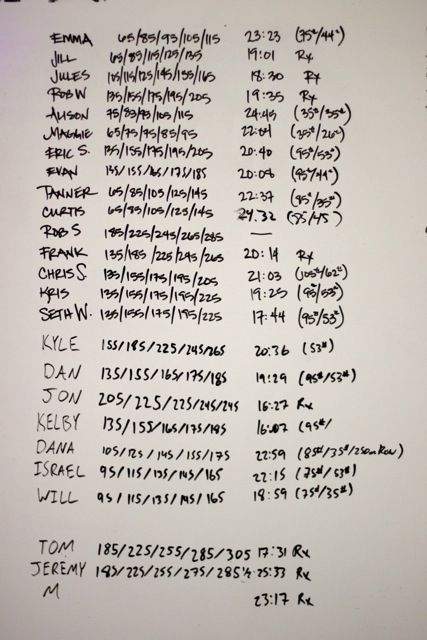 EMMA 65/85/95/105/115 23:23 (75#/44#)
JILL 65/85/115/125/135 19:01 Rx
JULES 105/115/125/145/155/165 18:30 Rx
ROB W 135/155/175/195/205 19:35 Rx
ALISON 75/83/93/105/115 24:45 (35#/35#)
MAGGIE 65/75/75/85/95 22:04 (35#/26#)
ERIC S. 135/155/175/195/205 20:40 (95#/53#)
EVAN 135/155/165/175/185 20:08 (95#/44#)
TANNER 65/85/105/125/145 22:37 (95#/35#)
CURTIS 65/85/105/125/145 24:32 (55/45)
ROB S 185/225/245/265/285 —
FRANK 135/185/225/245/265 20:14 Rx
CHRIS S. 135/155/175/195/205 21:03 (105#/62#)
KRIS 135/155/175/195/225 19:25 (95/53#)
SETH W. 135/155/175/195/225 17:44 (95#/53#)
KYLE 155/185/225/245/265 20:36 (53#)
DAN 135/155/165/175/185 19:29 (95#/53#)
JON 205/225/225/245/245 16:27 Rx
KELBY 135/155/165/175/195 16:07 (95#/
DANA 105/125/145/155/175 22:59 (85#/35#/250m Row)
ISRAEL 95/115/135/145/165 22:15 (75#/53#)
WILL 95/115/135/145/165 18:59 (75#/35#)
TOM 185/225/255/285/305 17:31 Rx
JEREMY 185/225/255/275/285 25:33 Rx
M 23:17 Rx